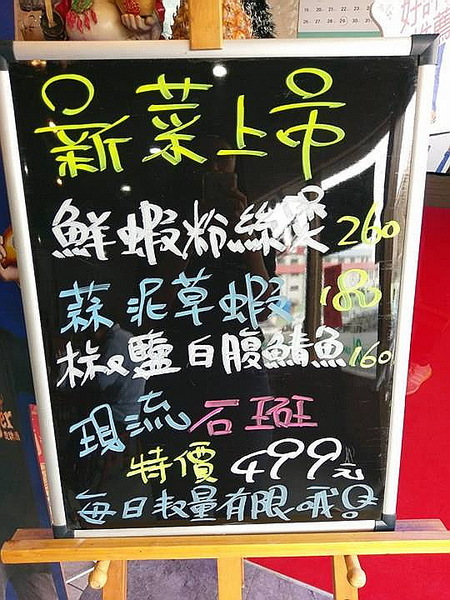 新菜上市
鮮蝦粉絲煲 260
蒜泥草蝦 180
椒鹽白腹鯖魚 160
現流石斑
特價 499元
每日數量有限哦!